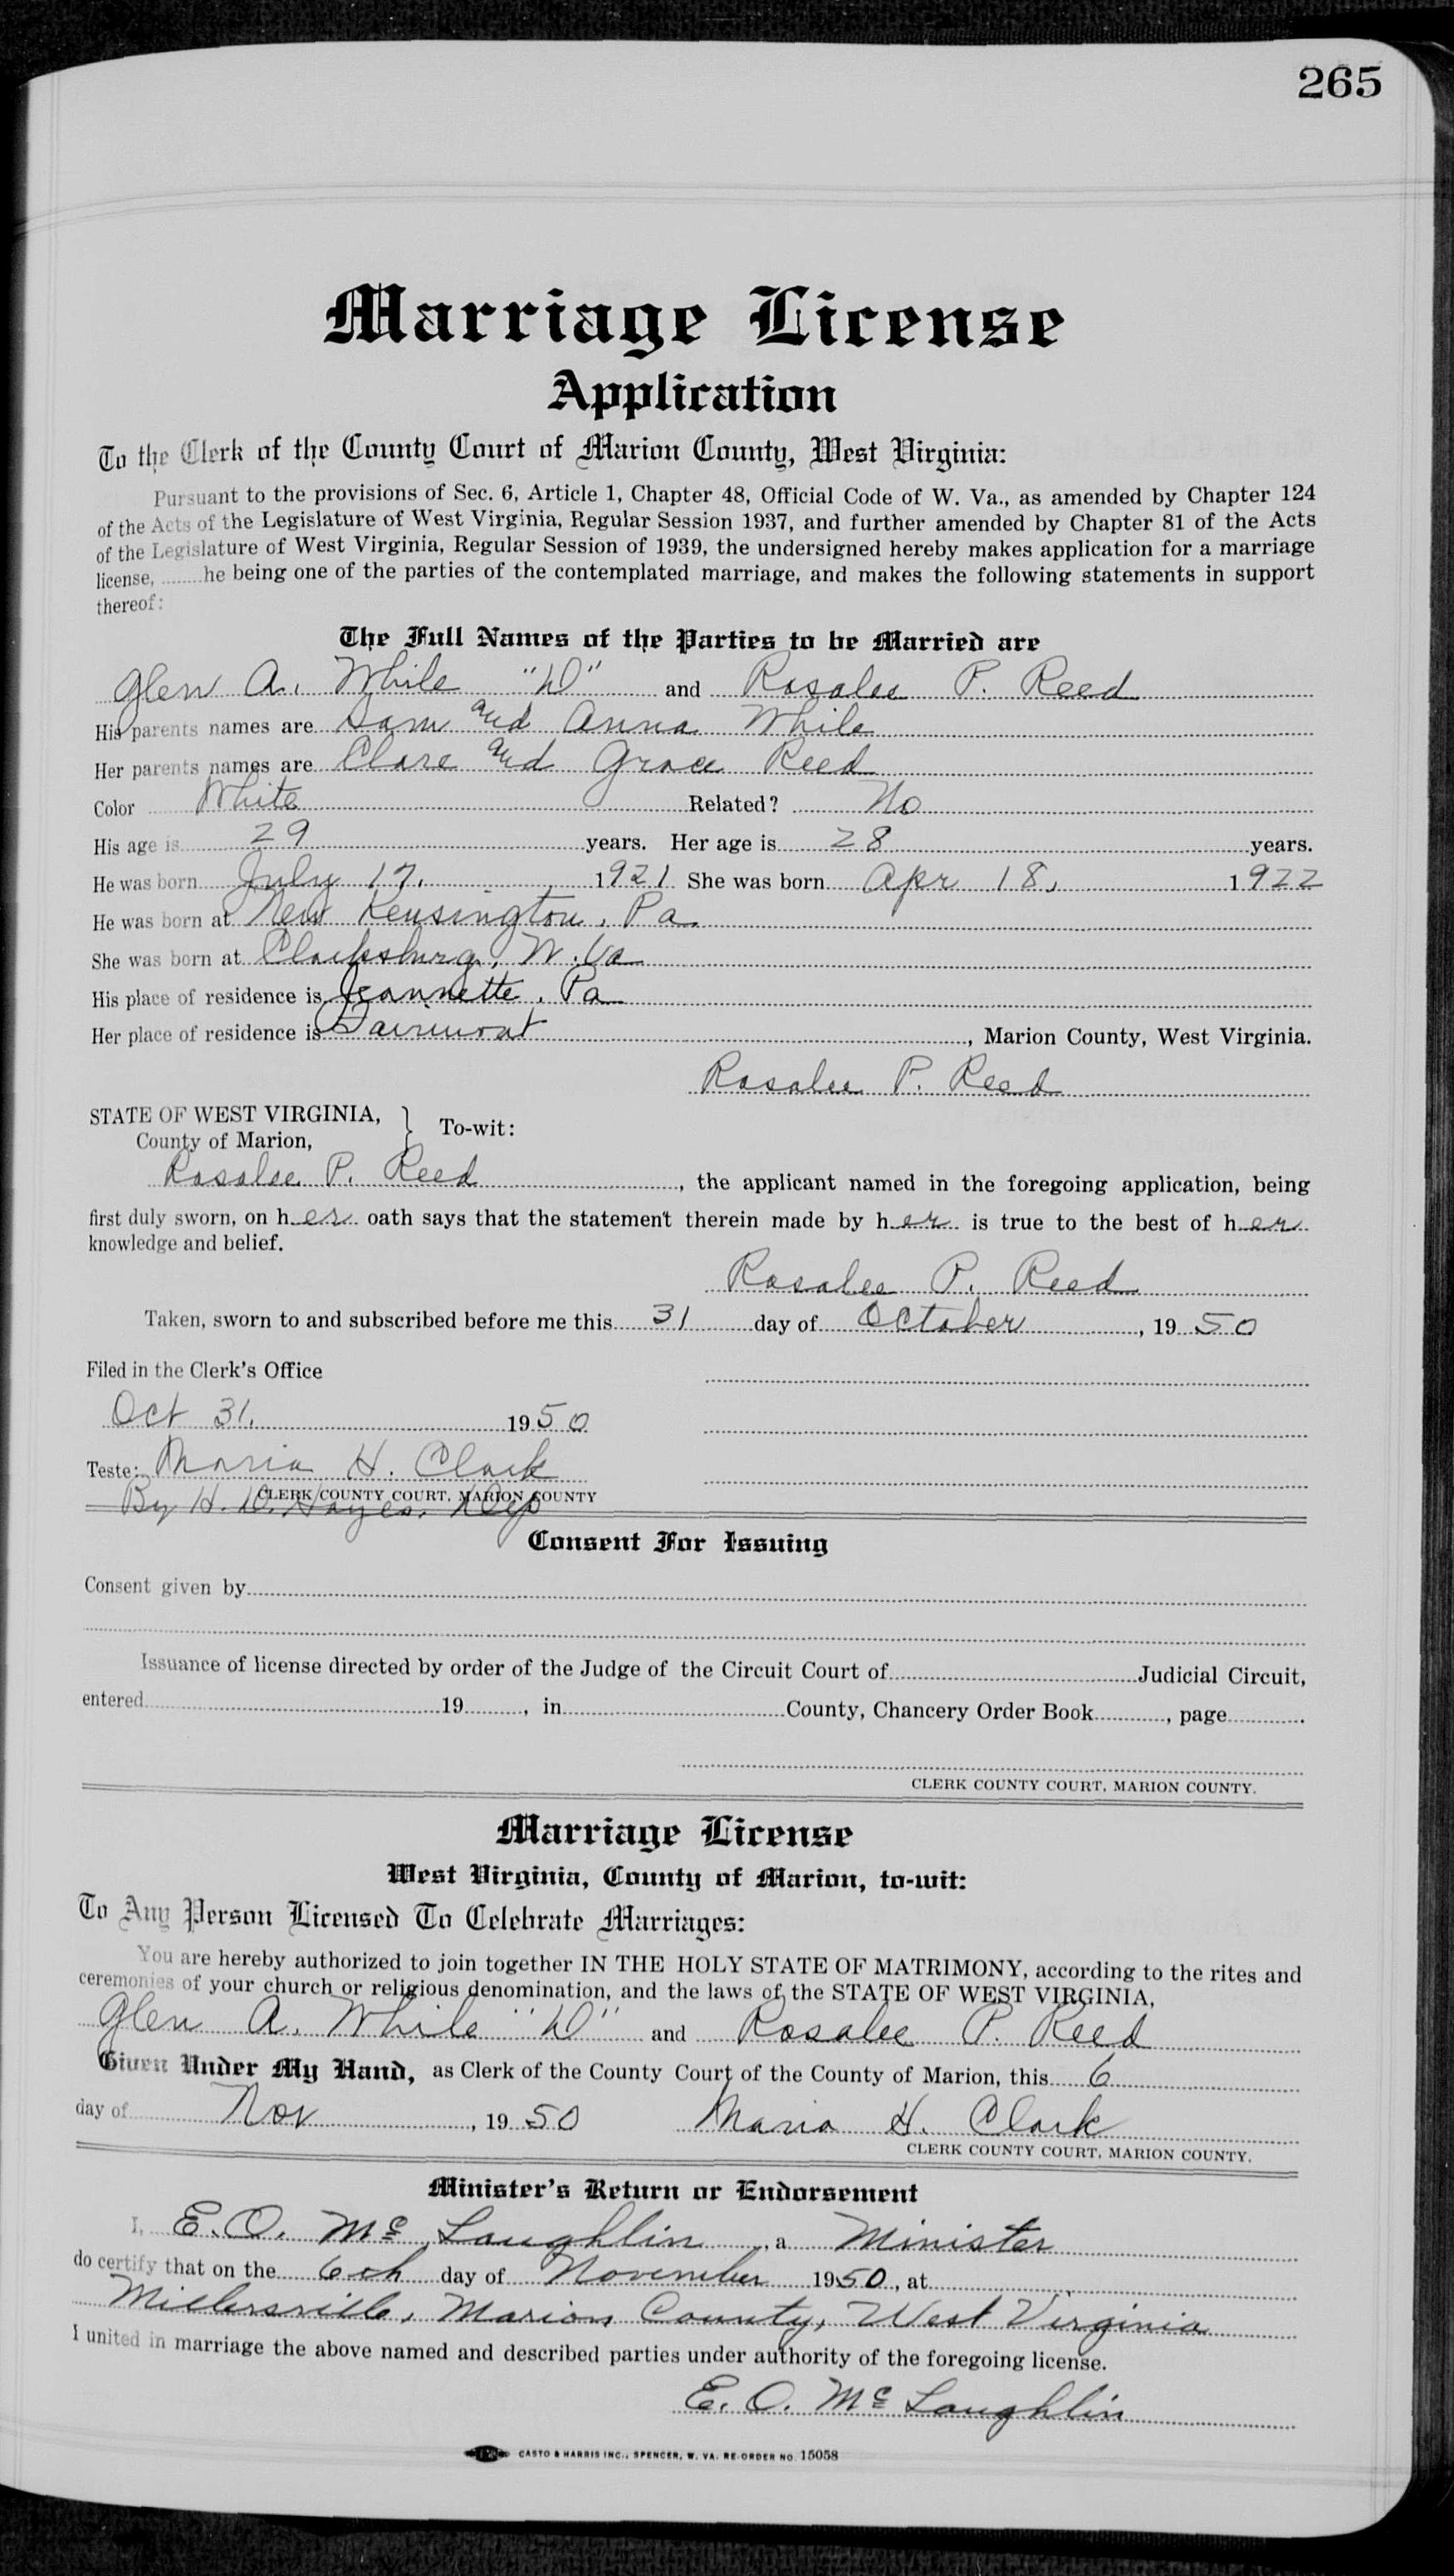 265
Marriage License
Application
To the Clerk of the County Court of Marion County, West Virginia:
Pursuant to the provisions of Sec. 6, Article 1, Chapter 48, Official Code of W. Va., as amended by Chapter 124
of the Acts of the Legislature of West Virginia, Regular Session 1937, and further amended by Chapter 81 of the Acts
of the Legislature of West Virginia, Regular Session of 1939, the undersigned hereby makes application for a marriage
license, ........he being one of the parties of the contemplated marriage, and makes the following statements in support
thereof:
The Full Names of the Parties to be Married are
Glen A. While "D" and Rosalee P. Reed
His parents names are Sam and Anna While
Her parents names are Clare and Grace Reed
Color White Related? No
His age is 29 years. Her age is 28 years.
He was born July 17, 1921 She was born Apr 18, 1922
He was born at New Kensington, Pa.
She was born at Clarksburg, W. Va
His place of residence is Jeannette, Pa
Her place of residence is Fairmont, Marion County, West Virginia.
Rosalee P. Reed
STATE OF WEST VIRGINIA,
County of Marion, } To-wit:
Rosalee P. Reed, the applicant named in the foregoing application, being
first duly sworn, on her oath says that the statement therein made by her is true to the best of her
knowledge and belief.
Rosalee P. Reed
Taken, sworn to and subscribed before me this 31 day of October, 1950
Filed in the Clerk's Office
Oct 31, 1950
Teste: Maria H. Clark
CLERK COUNTY COURT, MARION COUNTY
By H. D. Hayes, Dep
Consent For Issuing
Consent given by
Issuance of license directed by order of the Judge of the Circuit Court of Judicial Circuit,
entered 19, in County, Chancery Order Book, page.
CLERK COUNTY COURT, MARION COUNTY.
Marriage License
West Virginia, County of Marion, to-wit:
To Any Person Licensed To Celebrate Marriages:
You are hereby authorized to join together IN THE HOLY STATE OF MATRIMONY, according to the rites and
ceremonies of your church or religious denomination, and the laws of the STATE OF WEST VIRGINIA,
Glen A. While "D" and Rosalee P. Reed
Given Under My Hand, as Clerk of the County Court of the County of Marion, this 6
day of Nov, 1950 Maria H. Clark
CLERK COUNTY COURT, MARION COUNTY.
Minister's Return or Endorsement
I, E. O. McLaughlin, a Minister
do certify that on the 6th day of November 1950, at
Millersville, Marion County, West Virginia
I united in marriage the above named and described parties under authority of the foregoing license.
E. O. McLaughlin
CASTO & HARRIS INC., SPENCER, W. VA. RE-ORDER NO. 15058